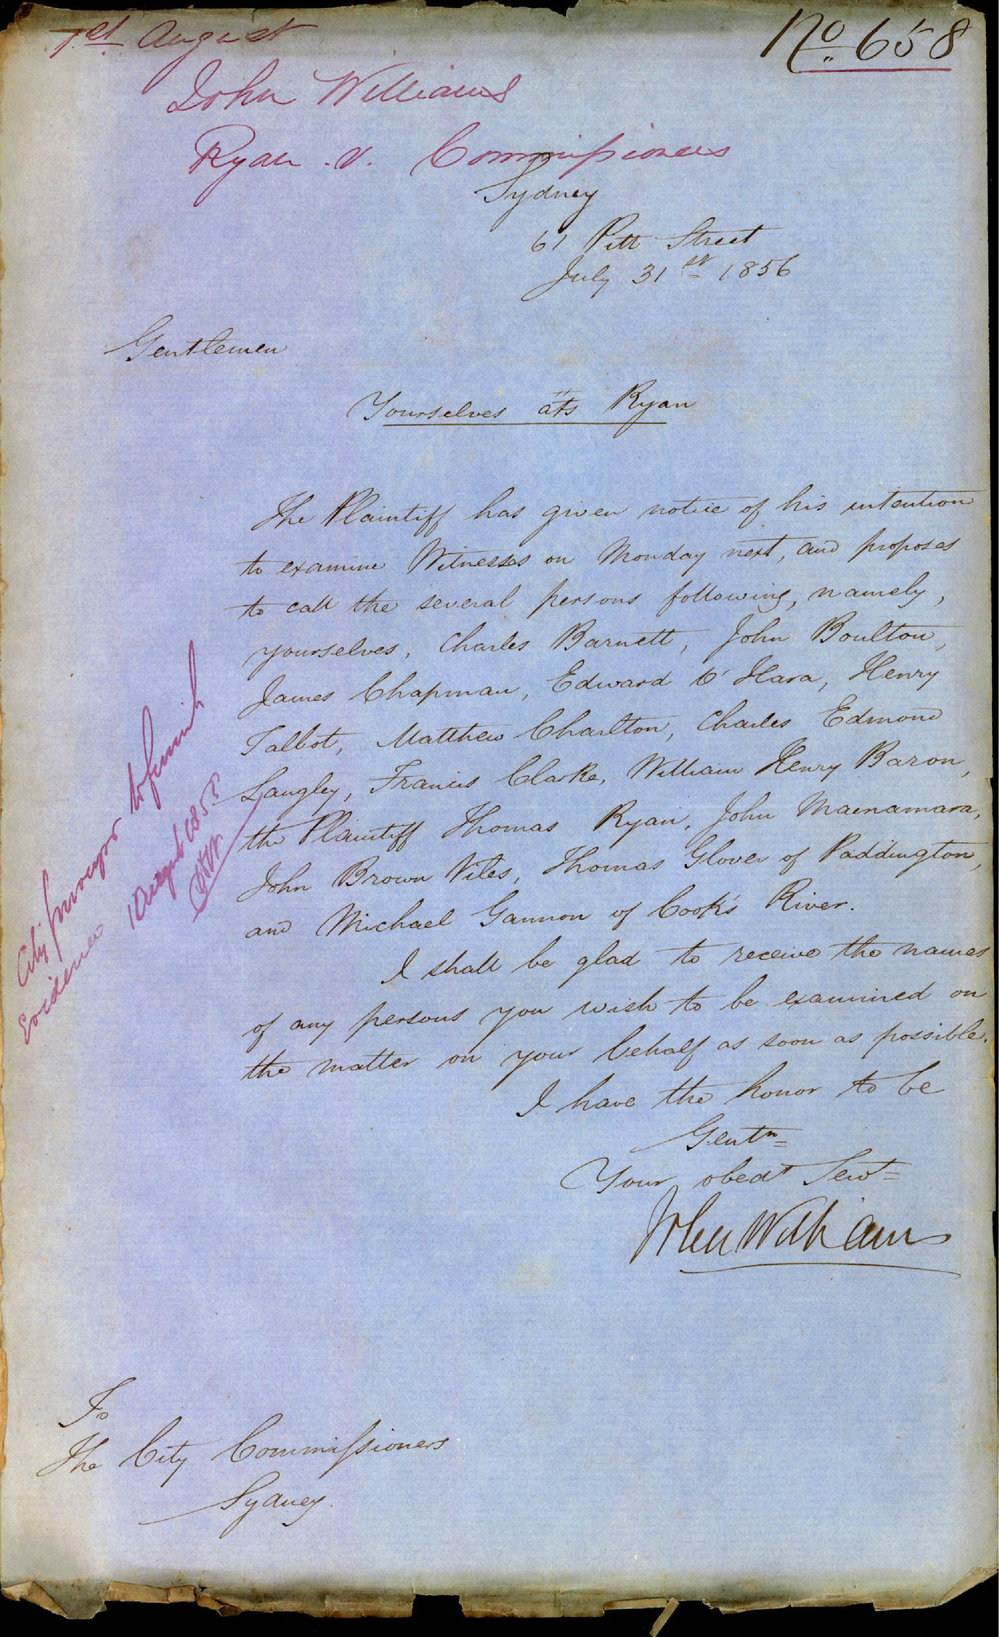 1st August
No 658
John Williams
Ryan v. Commissioners
Sydney
61 Pitt Street
July 31st 1856
Gentlemen
Yourselves ats Ryan
The Plaintiff has given notice of his intention
to examine Witnesses on Monday next, and proposes
to call the several persons following, namely,
yourselves, Charles Barnett, John Boulton,
James Chapman, Edward O'Hara, Henry
Talbot, Matthew Charlton, Charles Edmond
Langley, Francis Clarke, William Henry Baron,
the Plaintiff Thomas Ryan, John Macnamara,
John Brown Viles, Thomas Glover of Paddington,
and Michael Gannon of Cook's River.
I shall be glad to receive the names
of any persons you wish to be examined on
the matter on your behalf as soon as possible.
I have the honor to be
Gentn
Your obedt Servt
John Williams
City Surveyor to furnish
Evidence 1 August
To
The City Commissioners
Sydney.